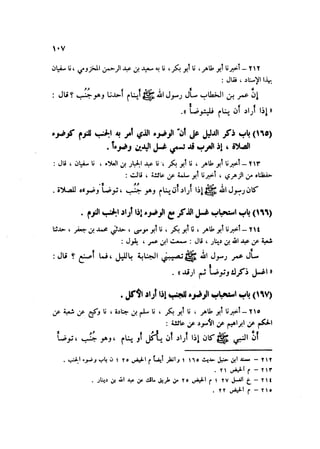 ١٠٧
٢١٢ – أخبرنا أبو طاهر، نا أبو بكر، نا به سعيد بن عبد الرحمن المخزومي، نا سفيان
بهذا الإسناد، فقال :
إن عمر بن الخطاب سأل رسول الله ﷺ أينام أحدنا وهو جُنُب؟ قال :
« إذا أراد أن ينام فليتوضأ ».
(١٦٥) باب ذكر الدليل على أنّ الوضوء الذي أمر به الجنب للنوم كوضوء
الصلاة، إذ العرب قد تسمي غسل اليدين وضوءاً .
٢١٣ – أخبرنا أبو طاهر، نا أبو بكر، نا عبد الجبار بن العلاء، نا سفيان، قال :
حفظناه من الزهري، أخبرني أبو سلمة عن عائشة، قالت :
كان رسول الله ﷺ إذا أراد أن ينام وهو جنب، توضأ وضوءه للصلاة .
(١٦٦) باب استحباب غسل الذكر مع الوضوء إذا أراد الجنب النوم .
٢١٤ – أخبرنا أبو طاهر، نا أبو بكر، نا أبو موسى، حدثني محمد بن جعفر، حدثنا
شعبة عن عبد الله بن دينار، قال : سمعت ابن عمر، يقول :
سأل عمر رسول الله ﷺ تصيبني الجنابة بالليل، فما أصنع ؟ قال :
« اغسل ذكرك وتوضأ ثم ارقد » .
(١٦٧) باب استحباب الوضوء للجنب إذا أراد الأكل .
٢١٥ – أخبرنا أبو طاهر، نا أبو بكر، نا سلم بن جنادة، نا وكيع عن شعبة عن
الحكم عن إبراهيم عن الأسود عن عائشة :
أنّ النبي ﷺ كان إذا أراد أن يأكل أو ينام، وهو جُنُب، توضأ .
٢١٢ – مسند ابن حنبل حديث ١٦٥ ؛ وانظر أيضاً م الحيض ٢٥ ؛ ن باب وضوء الجنب .
٢١٣ – م الحيض ٢١ .
٢١٤ – خ الغسل ٢٧ ؛ م الحيض ٢٥ من طريق مالك عن عبد الله بن دينار .
٢١٥ – م الحيض ٢٢ .